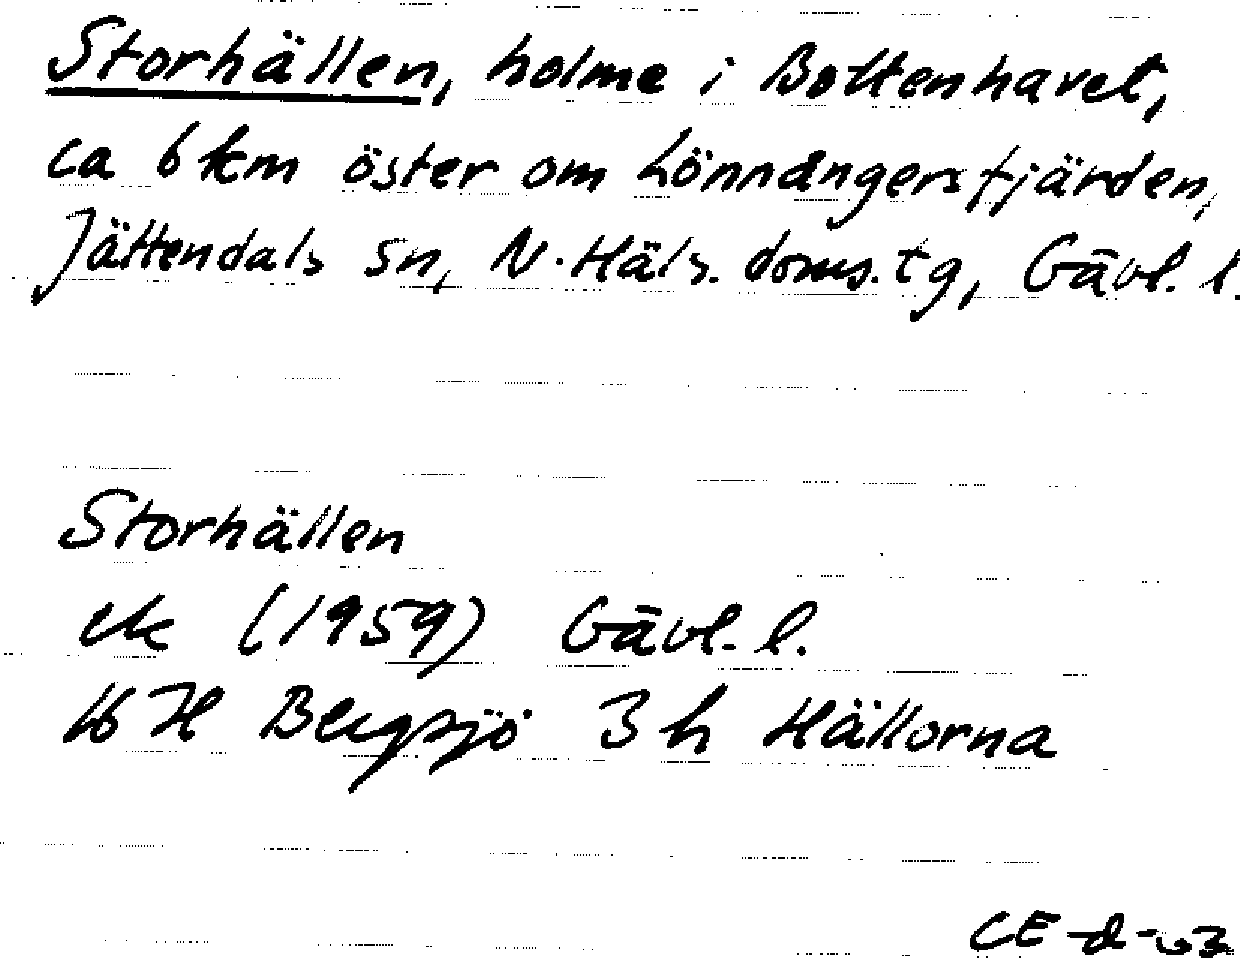 Storhällen, holme i Bottenhavet,
ca 6 km öster om Lönnångersfjärden,
Jättendals sn, N. Häls. doms. tg, Gävl. l.
Storhällen
ek (1959) Gävl. l.
16 H Bergsjö 3 h Hällorna